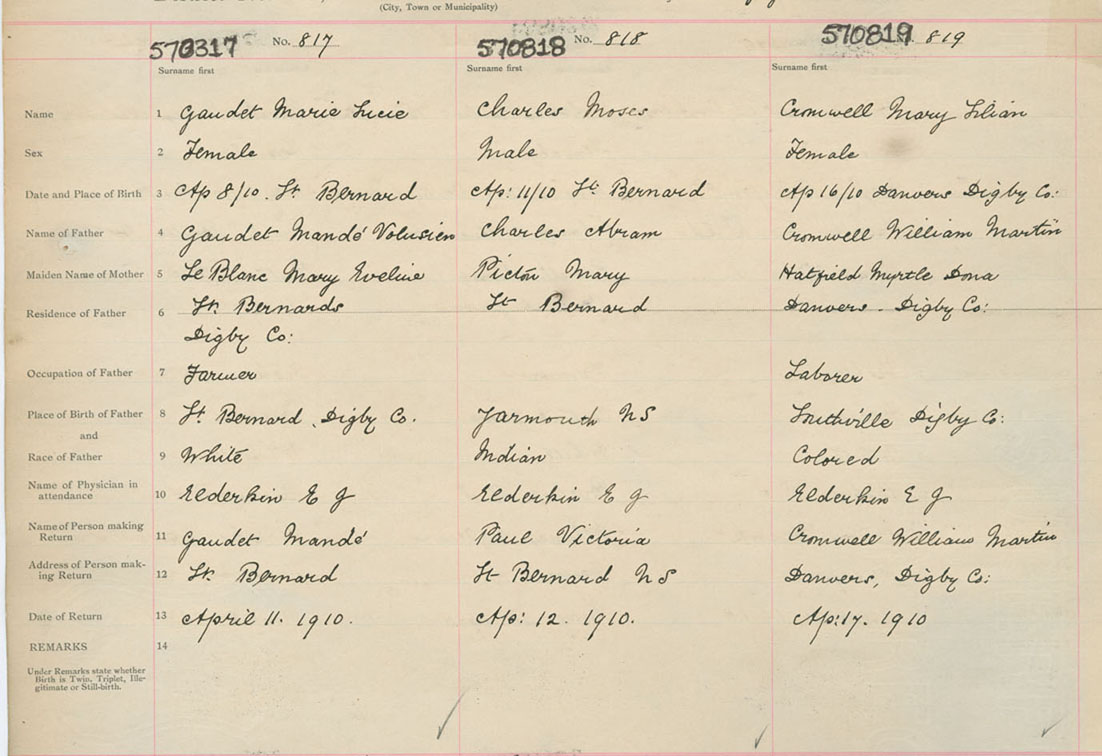 (City, Town or Municipality)
570317 No. 817 570818 No. 818 570819 No. 819
Surname first Surname first Surname first
Name 1 Gaudet Marie Lucie Charles Moses Cromwell Mary Lilian
Sex 2 Female Male Female
Date and Place of Birth 3 Ap 8/10. St. Bernard Ap: 11/10 St. Bernard Ap 16/10 Danvers Digby Co:
Name of Father 4 Gaudet Mandé Volusien Charles Abram Cromwell William Martin
Maiden Name of Mother 5 Le Blanc Mary Eveline Picton Mary Hatfield Myrtle Dona
Residence of Father 6 St. Bernards St Bernard Danvers. Digby Co:
Digby Co:
Occupation of Father 7 Farmer Laborer
Place of Birth of Father 8 St. Bernard, Digby Co. Yarmouth NS Southville Digby Co:
and
Race of Father 9 White Indian Colored
Name of Physician in
attendance 10 Elderkin E G Elderkin E G Elderkin E G
Name of Person making
Return 11 Gaudet Mandé Paul Victoria Cromwell William Martin
Address of Person mak-
ing Return 12 St. Bernard St Bernard NS Danvers, Digby Co:
Date of Return 13 April 11. 1910. Ap: 12. 1910. Ap: 17. 1910
REMARKS 14
Under Remarks state whether
Birth is Twin, Triplet, Ille-
gitimate or Still-birth.